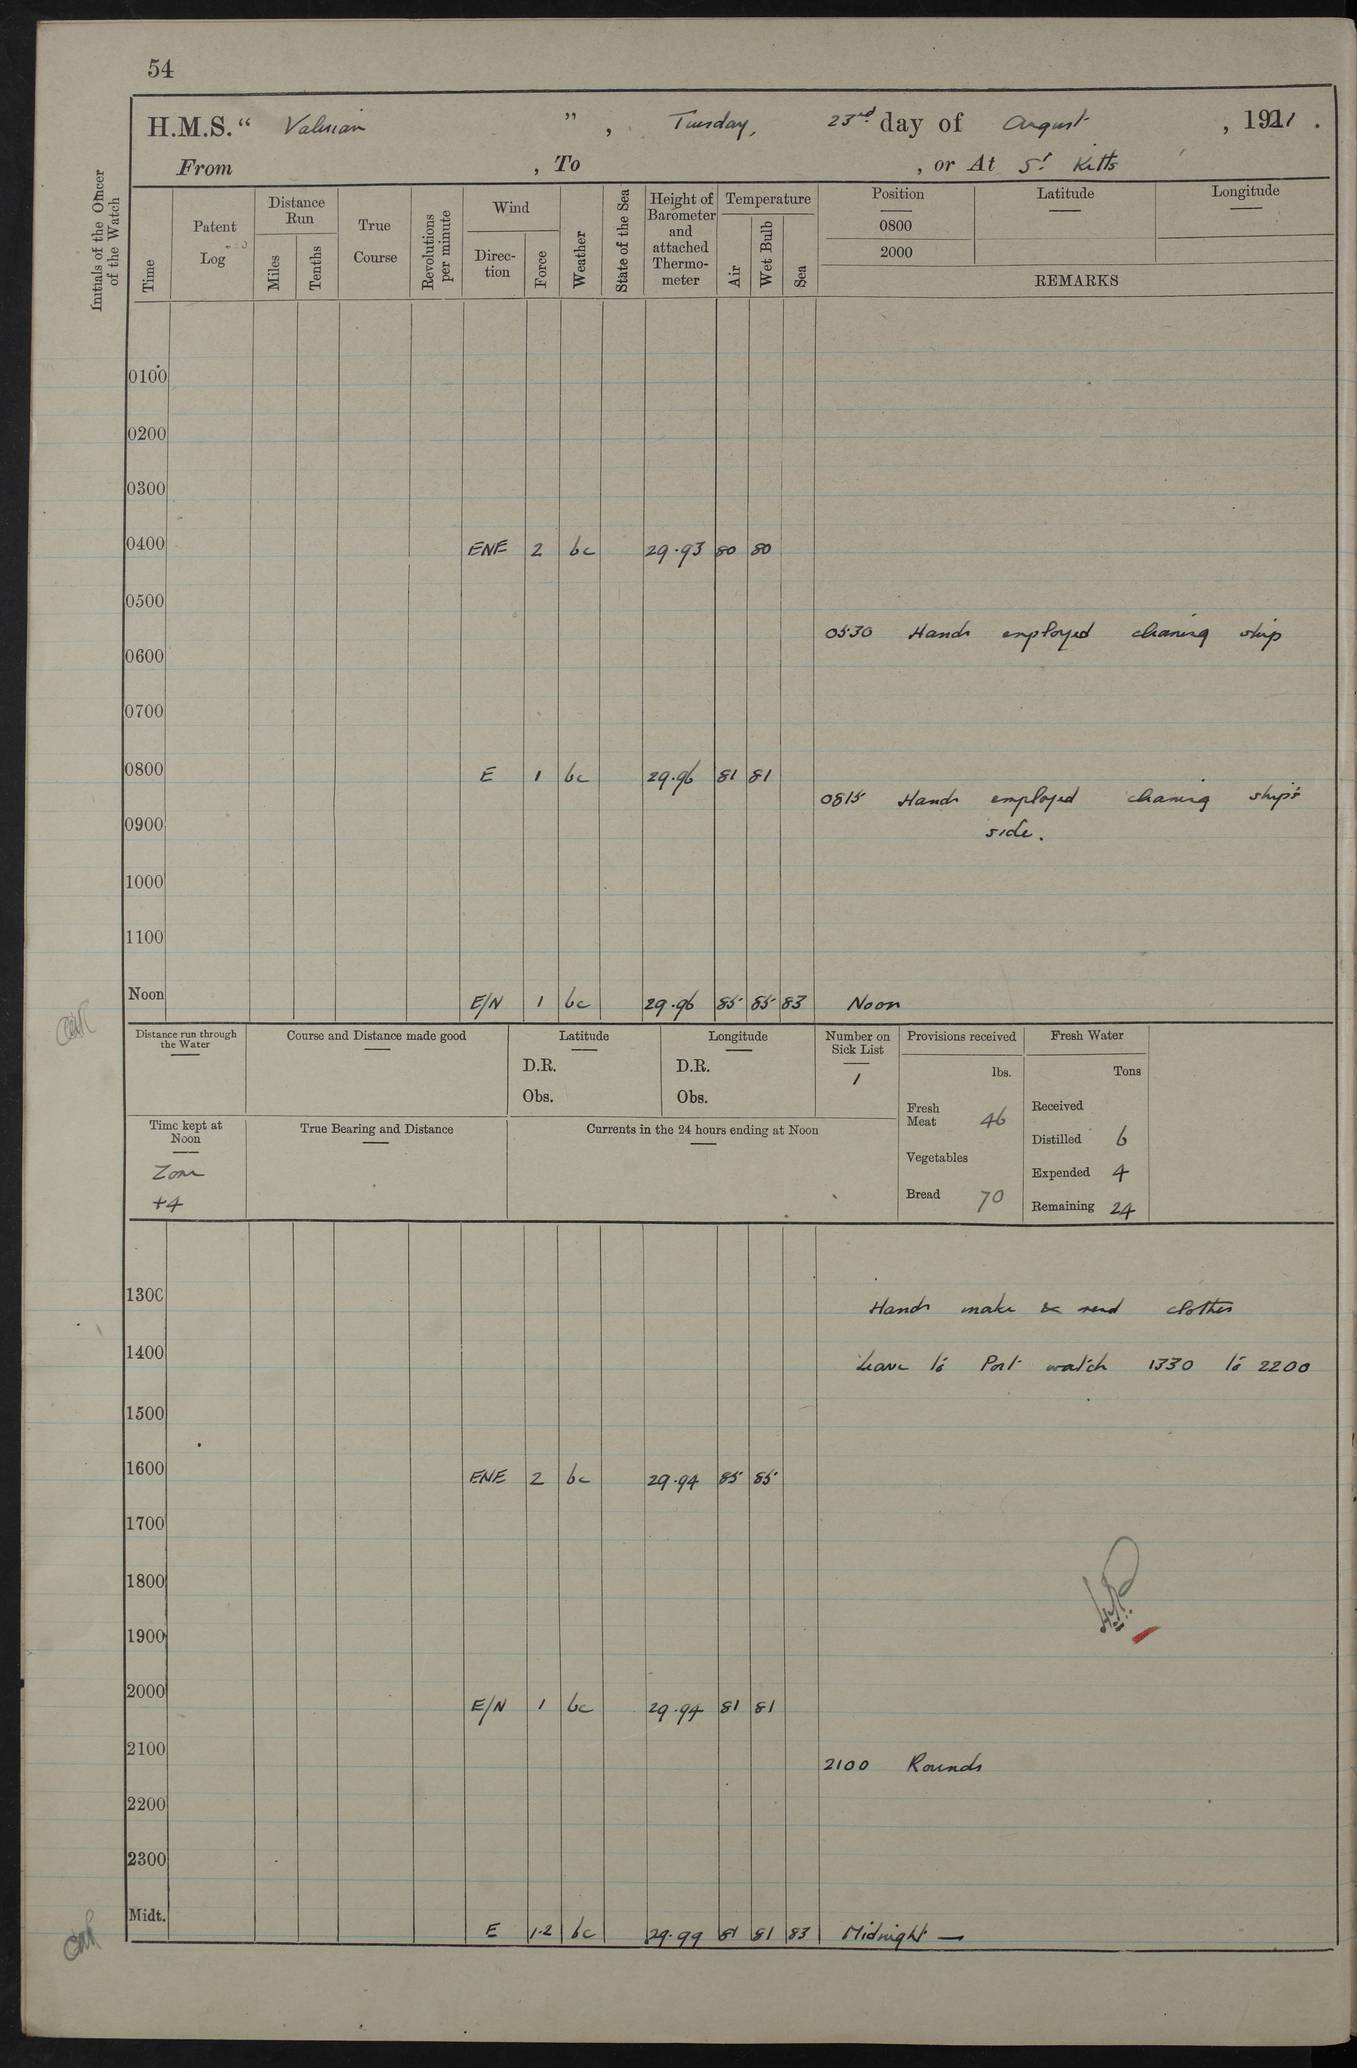 54
H.M.S. " Valerian " , Tuesday, 23rd day of August , 1921 .
From , To , or At St Kitts
Initials of the Officer of the Watch
Time
Patent Log
Distance Run
Miles
Tenths
True Course
Revolutions per minute
Wind
Direction
Force
Weather
State of the Sea
Height of Barometer and attached Thermometer
Temperature
Air
Wet Bulb
Sea
Position Latitude Longitude
0800
2000
REMARKS
0100
0200
0300
0400 ENE 2 bc 29.93 80 80
0500
0530 Hands employed cleaning ship
0600
0700
0800 E 1 bc 29.96 81 81
0815 Hands employed cleaning ship's
0900 side.
1000
1100
Noon E/N 1 bc 29.96 85 85 83 Noon
Distance run through the Water
Course and Distance made good
Latitude
D.R.
Obs.
Longitude
D.R.
Obs.
Number on Sick List
1
Provisions received
lbs.
Fresh Meat 46
Vegetables
Bread 70
Fresh Water
Tons
Received
Distilled 6
Expended 4
Remaining 24
Time kept at Noon
Zone
+4
True Bearing and Distance
Currents in the 24 hours ending at Noon
1300 Hands make & mend clothes
1400 Leave to Port watch 1330 to 2200
1500
1600 ENE 2 bc 29.94 85 85
1700
1800
1900
2000 E/N 1 bc 29.94 81 81
2100
2100 Rounds
2200
2300
Midt. E 1.2 bc 29.99 81 81 83 Midnight —